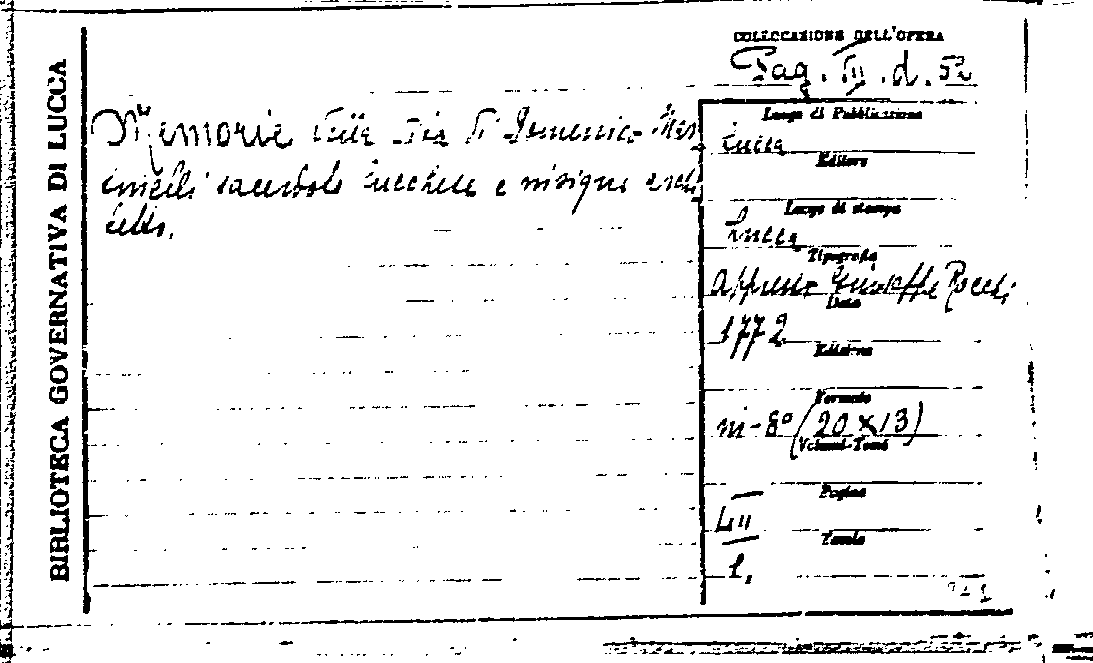 BIBLIOTECA GOVERNATIVA DI LUCCA
COLLOCAZIONE DELL'OPERA
Pag. III. d. 52
Memorie della vita di Domenico Mar
sacerdote lucchese e insigne archi
tetto.
Luogo di Pubblicazione
Lucca
Editore
Luogo di stampa
Lucca
Tipografia
appresso Giuseppe Rocchi
Data
1772
Edizione
Formato
in-8° (20 x 13)
Volumi-Tomi
Pagine
LII
Tavole
1.